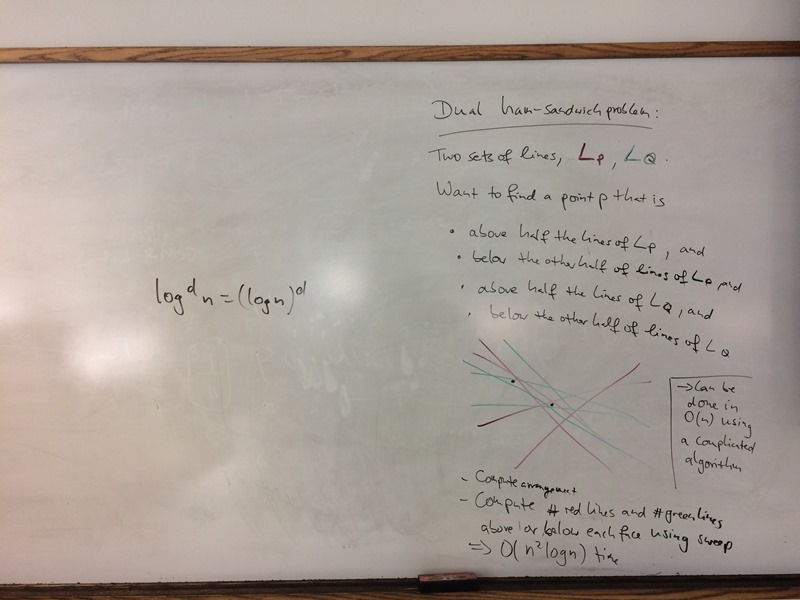 log^d n = (log n)^d
Dual ham-sandwich problem:
Two sets of lines, L_P, L_Q.
Want to find a point p that is
• above half the lines of L_P, and
• below the other half of lines of L_P, and
• above half the lines of L_Q, and
• below the other half of lines of L_Q
→ Can be
done in
O(n) using
a complicated
algorithm
- Compute arrangement
- Compute # red lines and # green lines
above/or below each face using sweep
⇒ O(n² log n) time